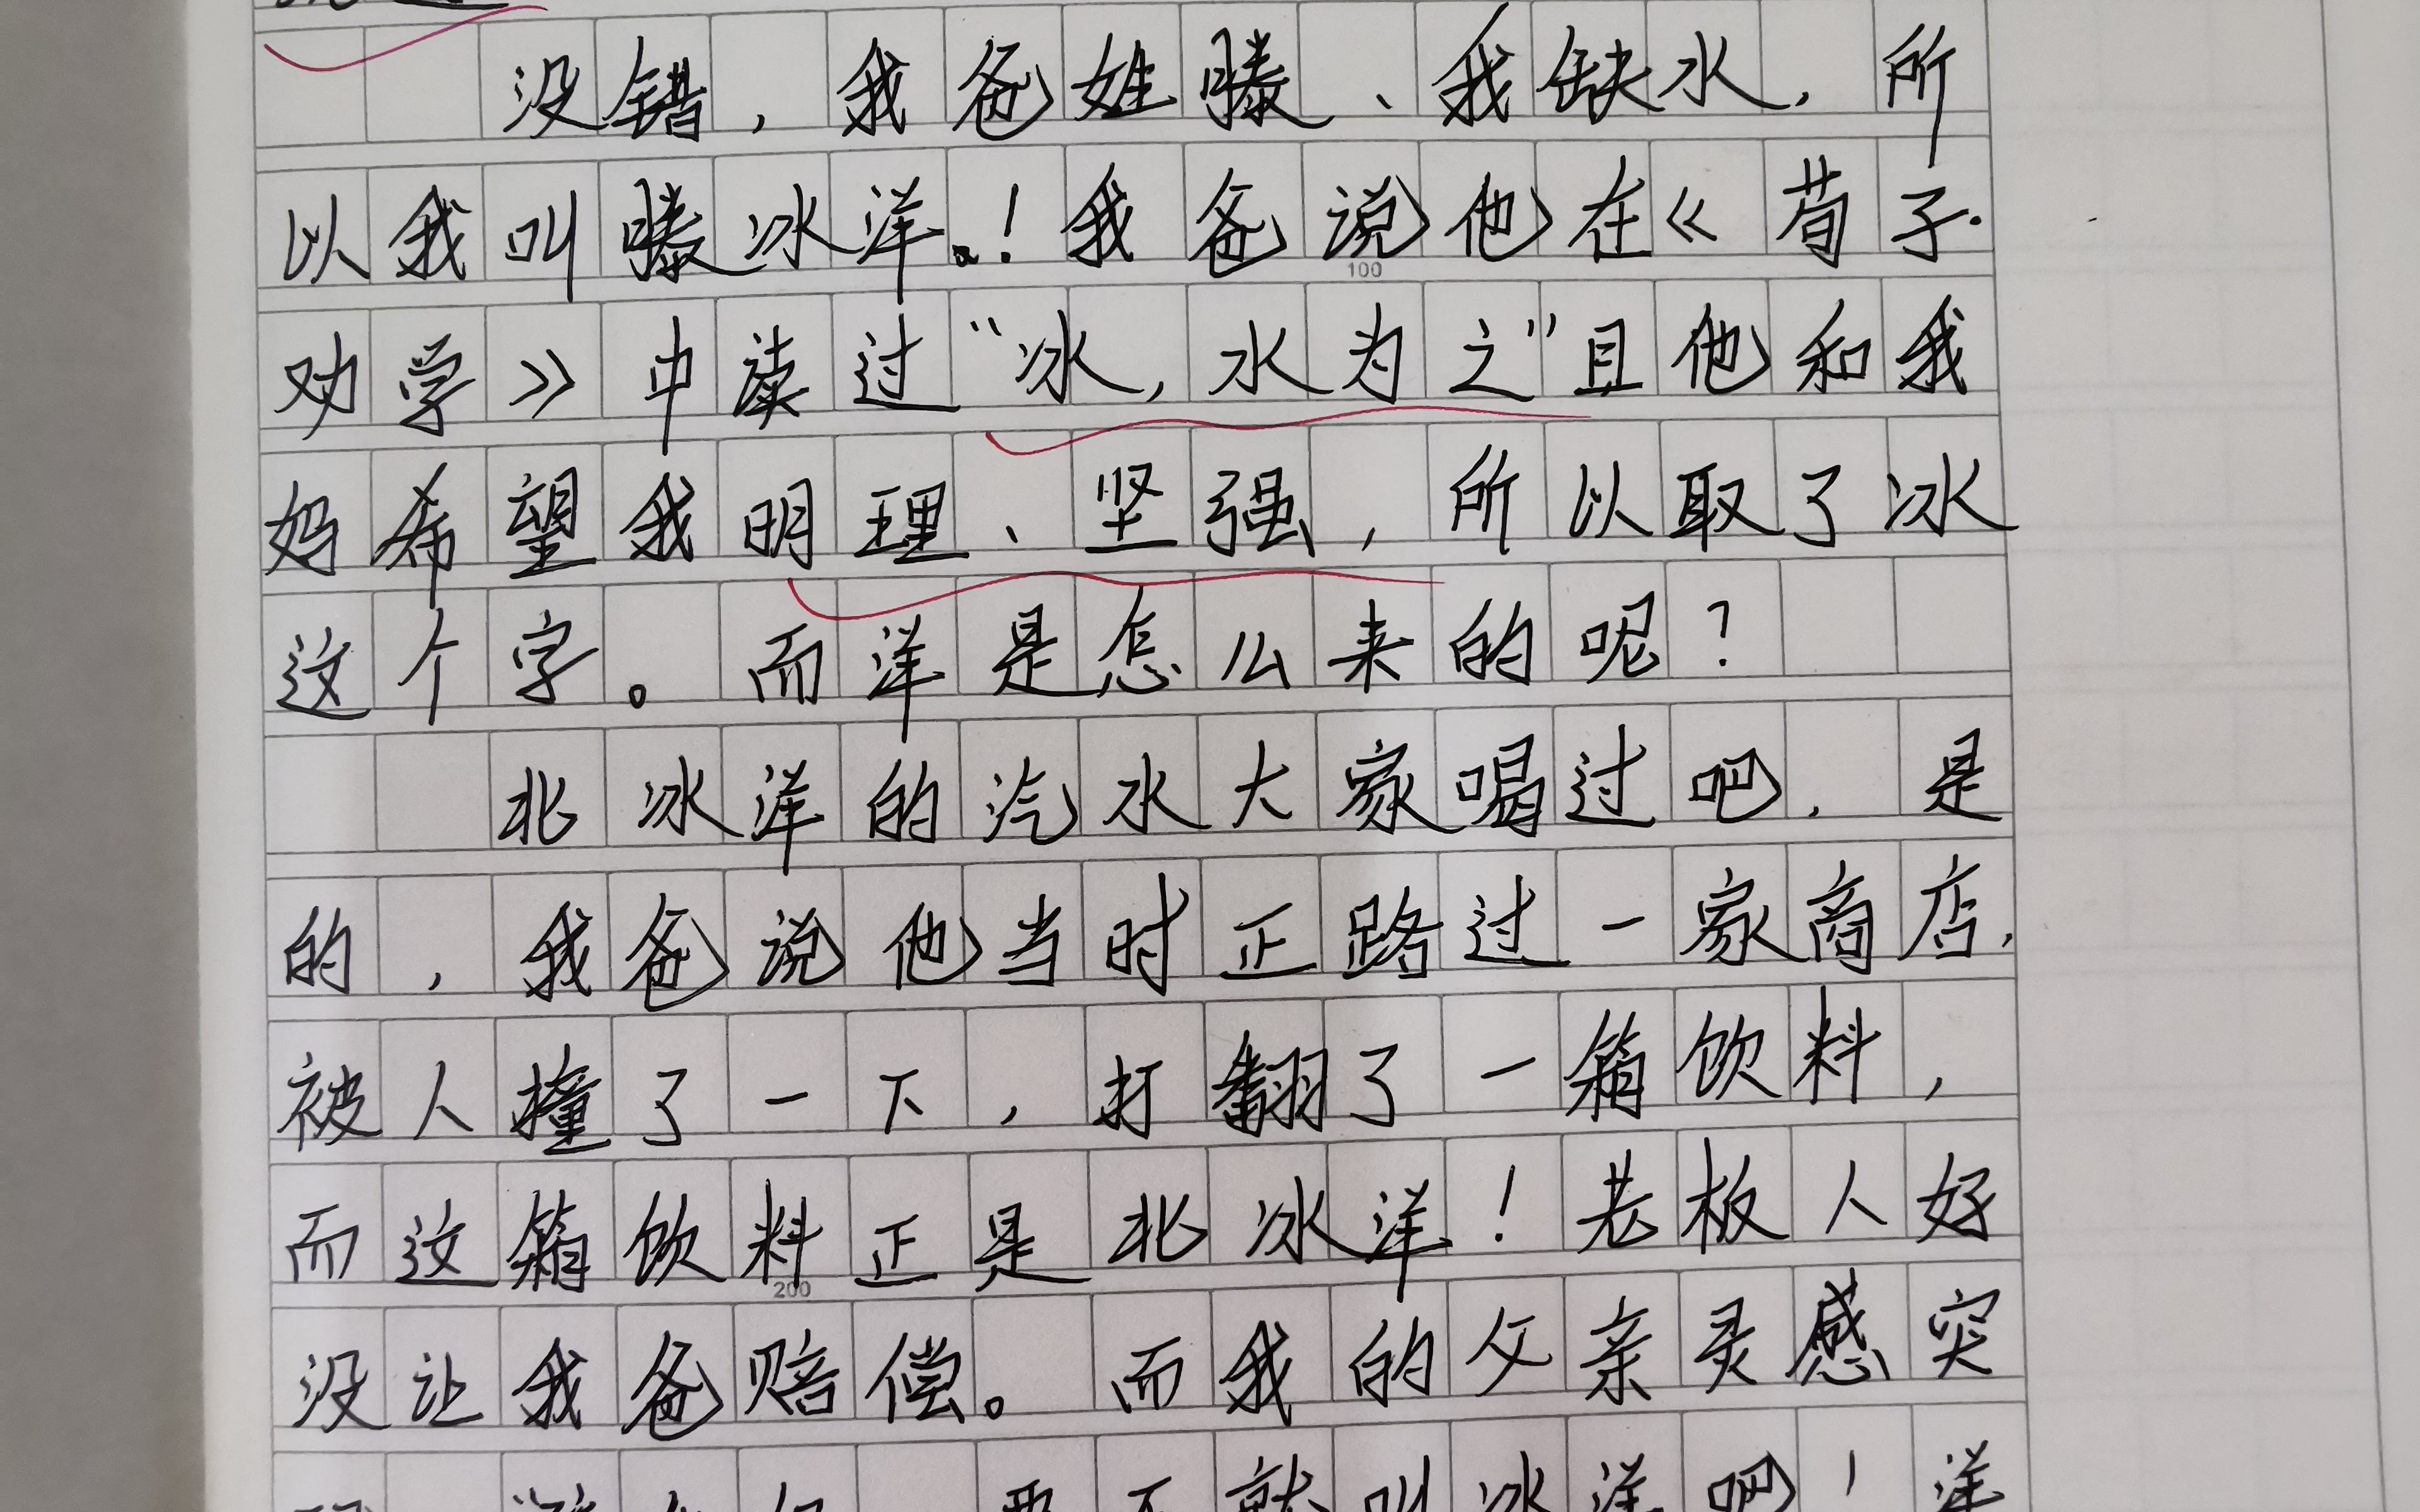 没错，我爸姓滕、我缺水，所
以我叫滕冰洋。！我爸说他在《荀子·
100
劝学》中读过“冰，水为之”且他和我
妈希望我明理、坚强，所以取了冰
这个字。而洋是怎么来的呢？
北冰洋的汽水大家喝过吧，是
的，我爸说他当时正路过一家商店，
被人撞了一下，打翻了一箱饮料，
而这箱饮料正是北冰洋！老板人好
200
没让我爸赔偿。而我的父亲灵感突
要不就叫冰洋吧！洋